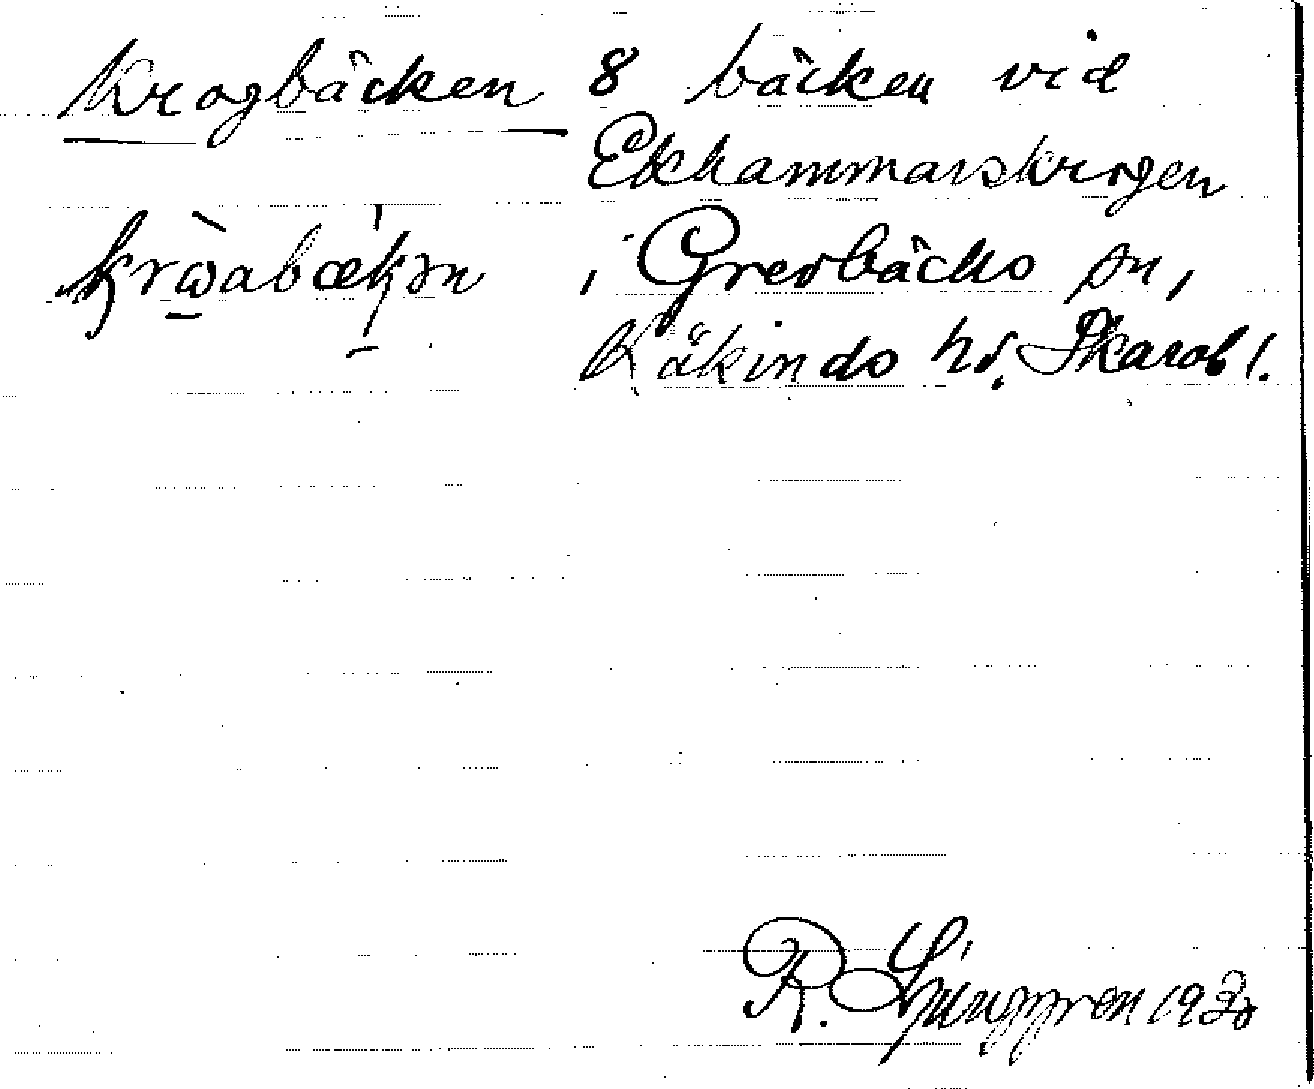 Krogbäcken 8 bäcken vid
Ekhammarskrogen
krωabækən i Grevbäcks sn,
Kåkinds hd. Skarab l.
R. Ljunggren 1930